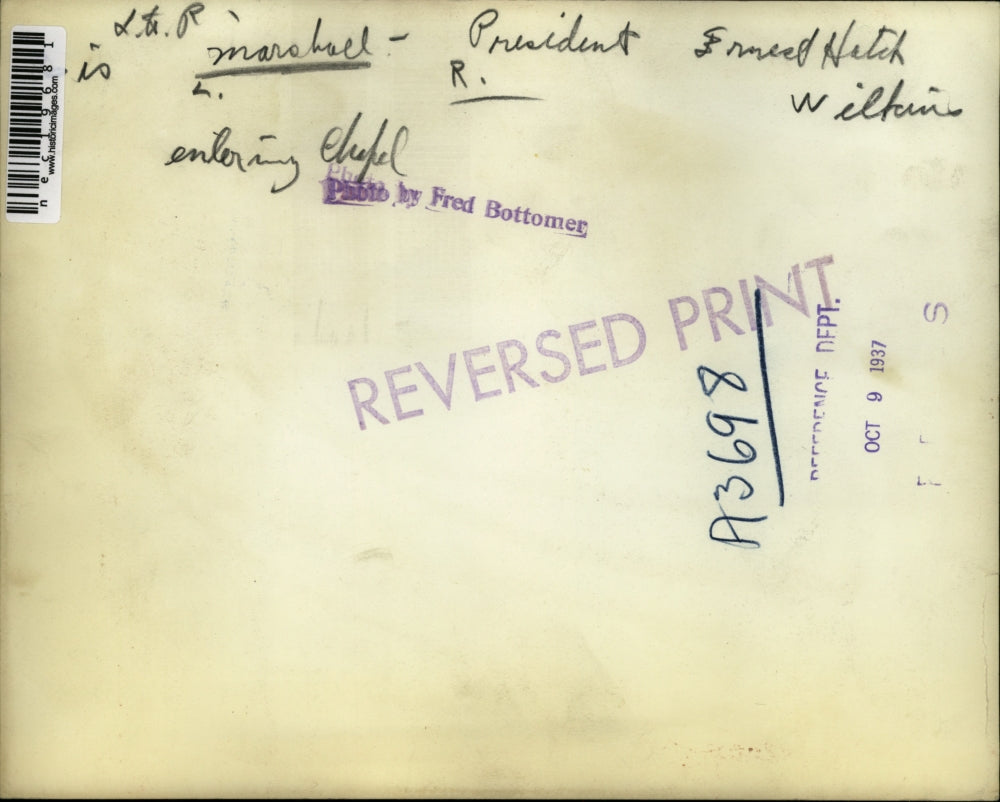 L. to R
is marshall - President Ernest Hatch
L. R. Wilkins
entering Chapel
Photo
Photo by Fred Bottomer
REVERSED PRINT
A3698
REFERENCE DEPT.
OCT 9 1937
www.historicimages.com
nec19681